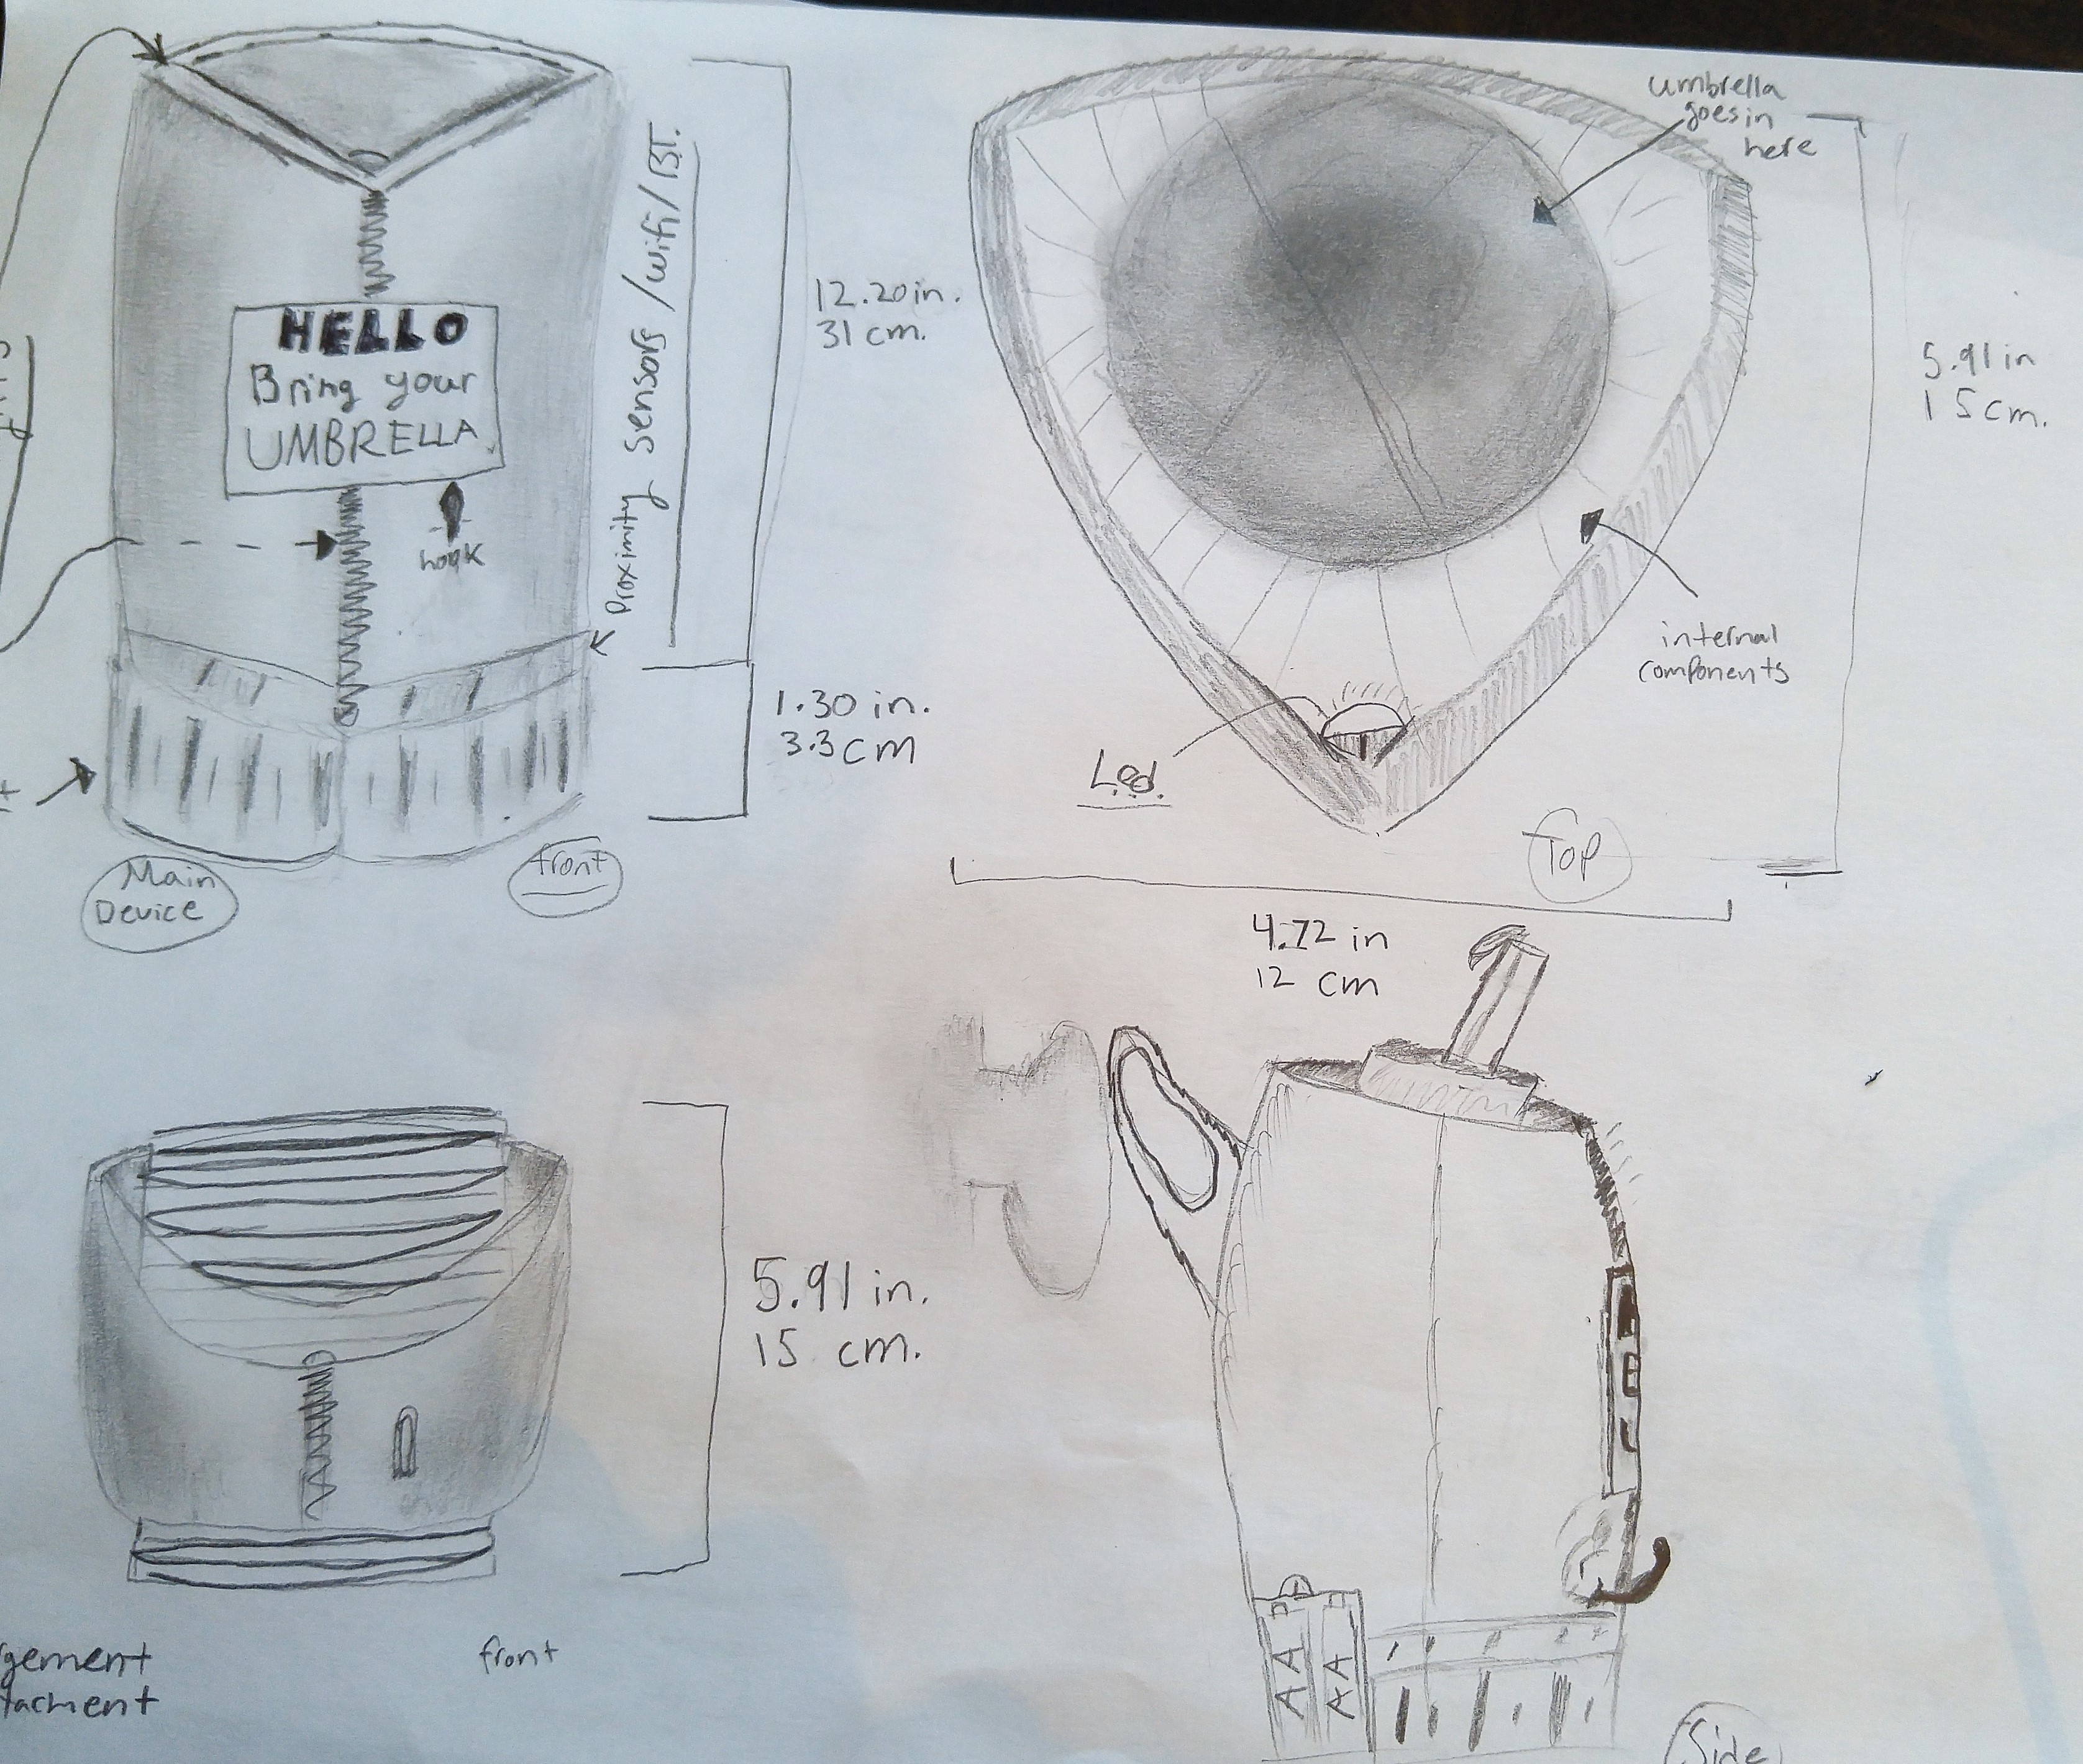 HELLO
Bring your
UMBRELLA
hook
Proximity sensors /wifi/BT.
12.20 in.
31 cm.
1.30 in.
3.3 cm
Main
Device
front
umbrella
goes in
here
5.91 in
15 cm.
internal
components
Led.
Top
4.72 in
12 cm
5.91 in.
15 cm.
gement
tachment
front
AA
AA
Side